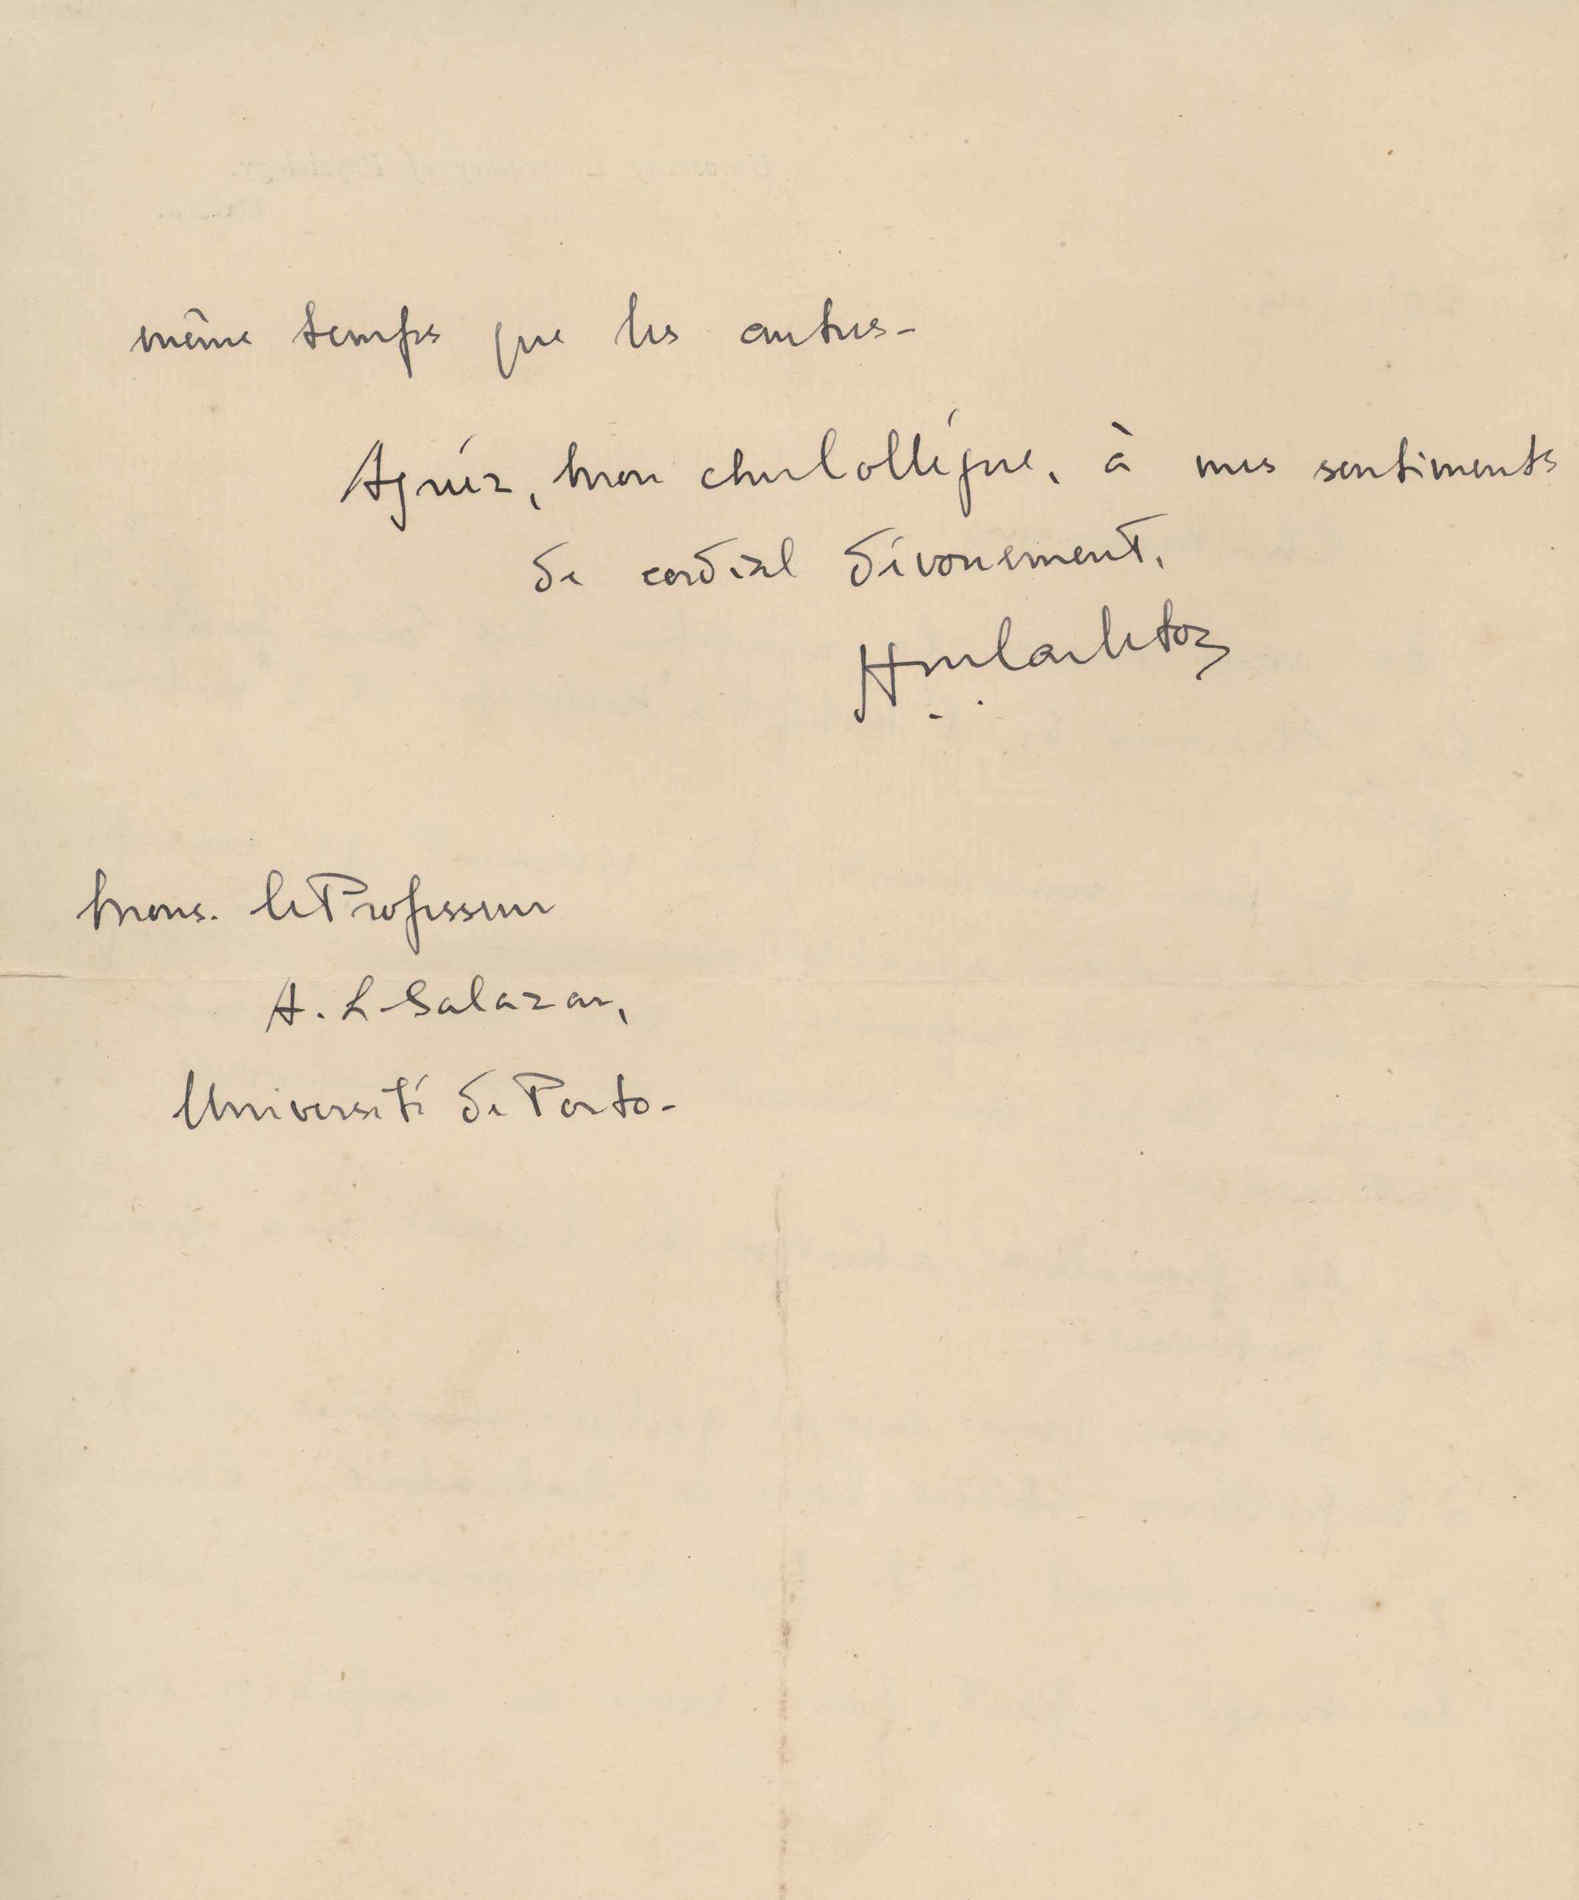 même temps que les autres -
Agréez, mon cher Collègue, à mes sentiments
de cordial dévouement.
H. M. Carleton
Mons. le Professeur
A. L. Salazar,
Université de Porto -